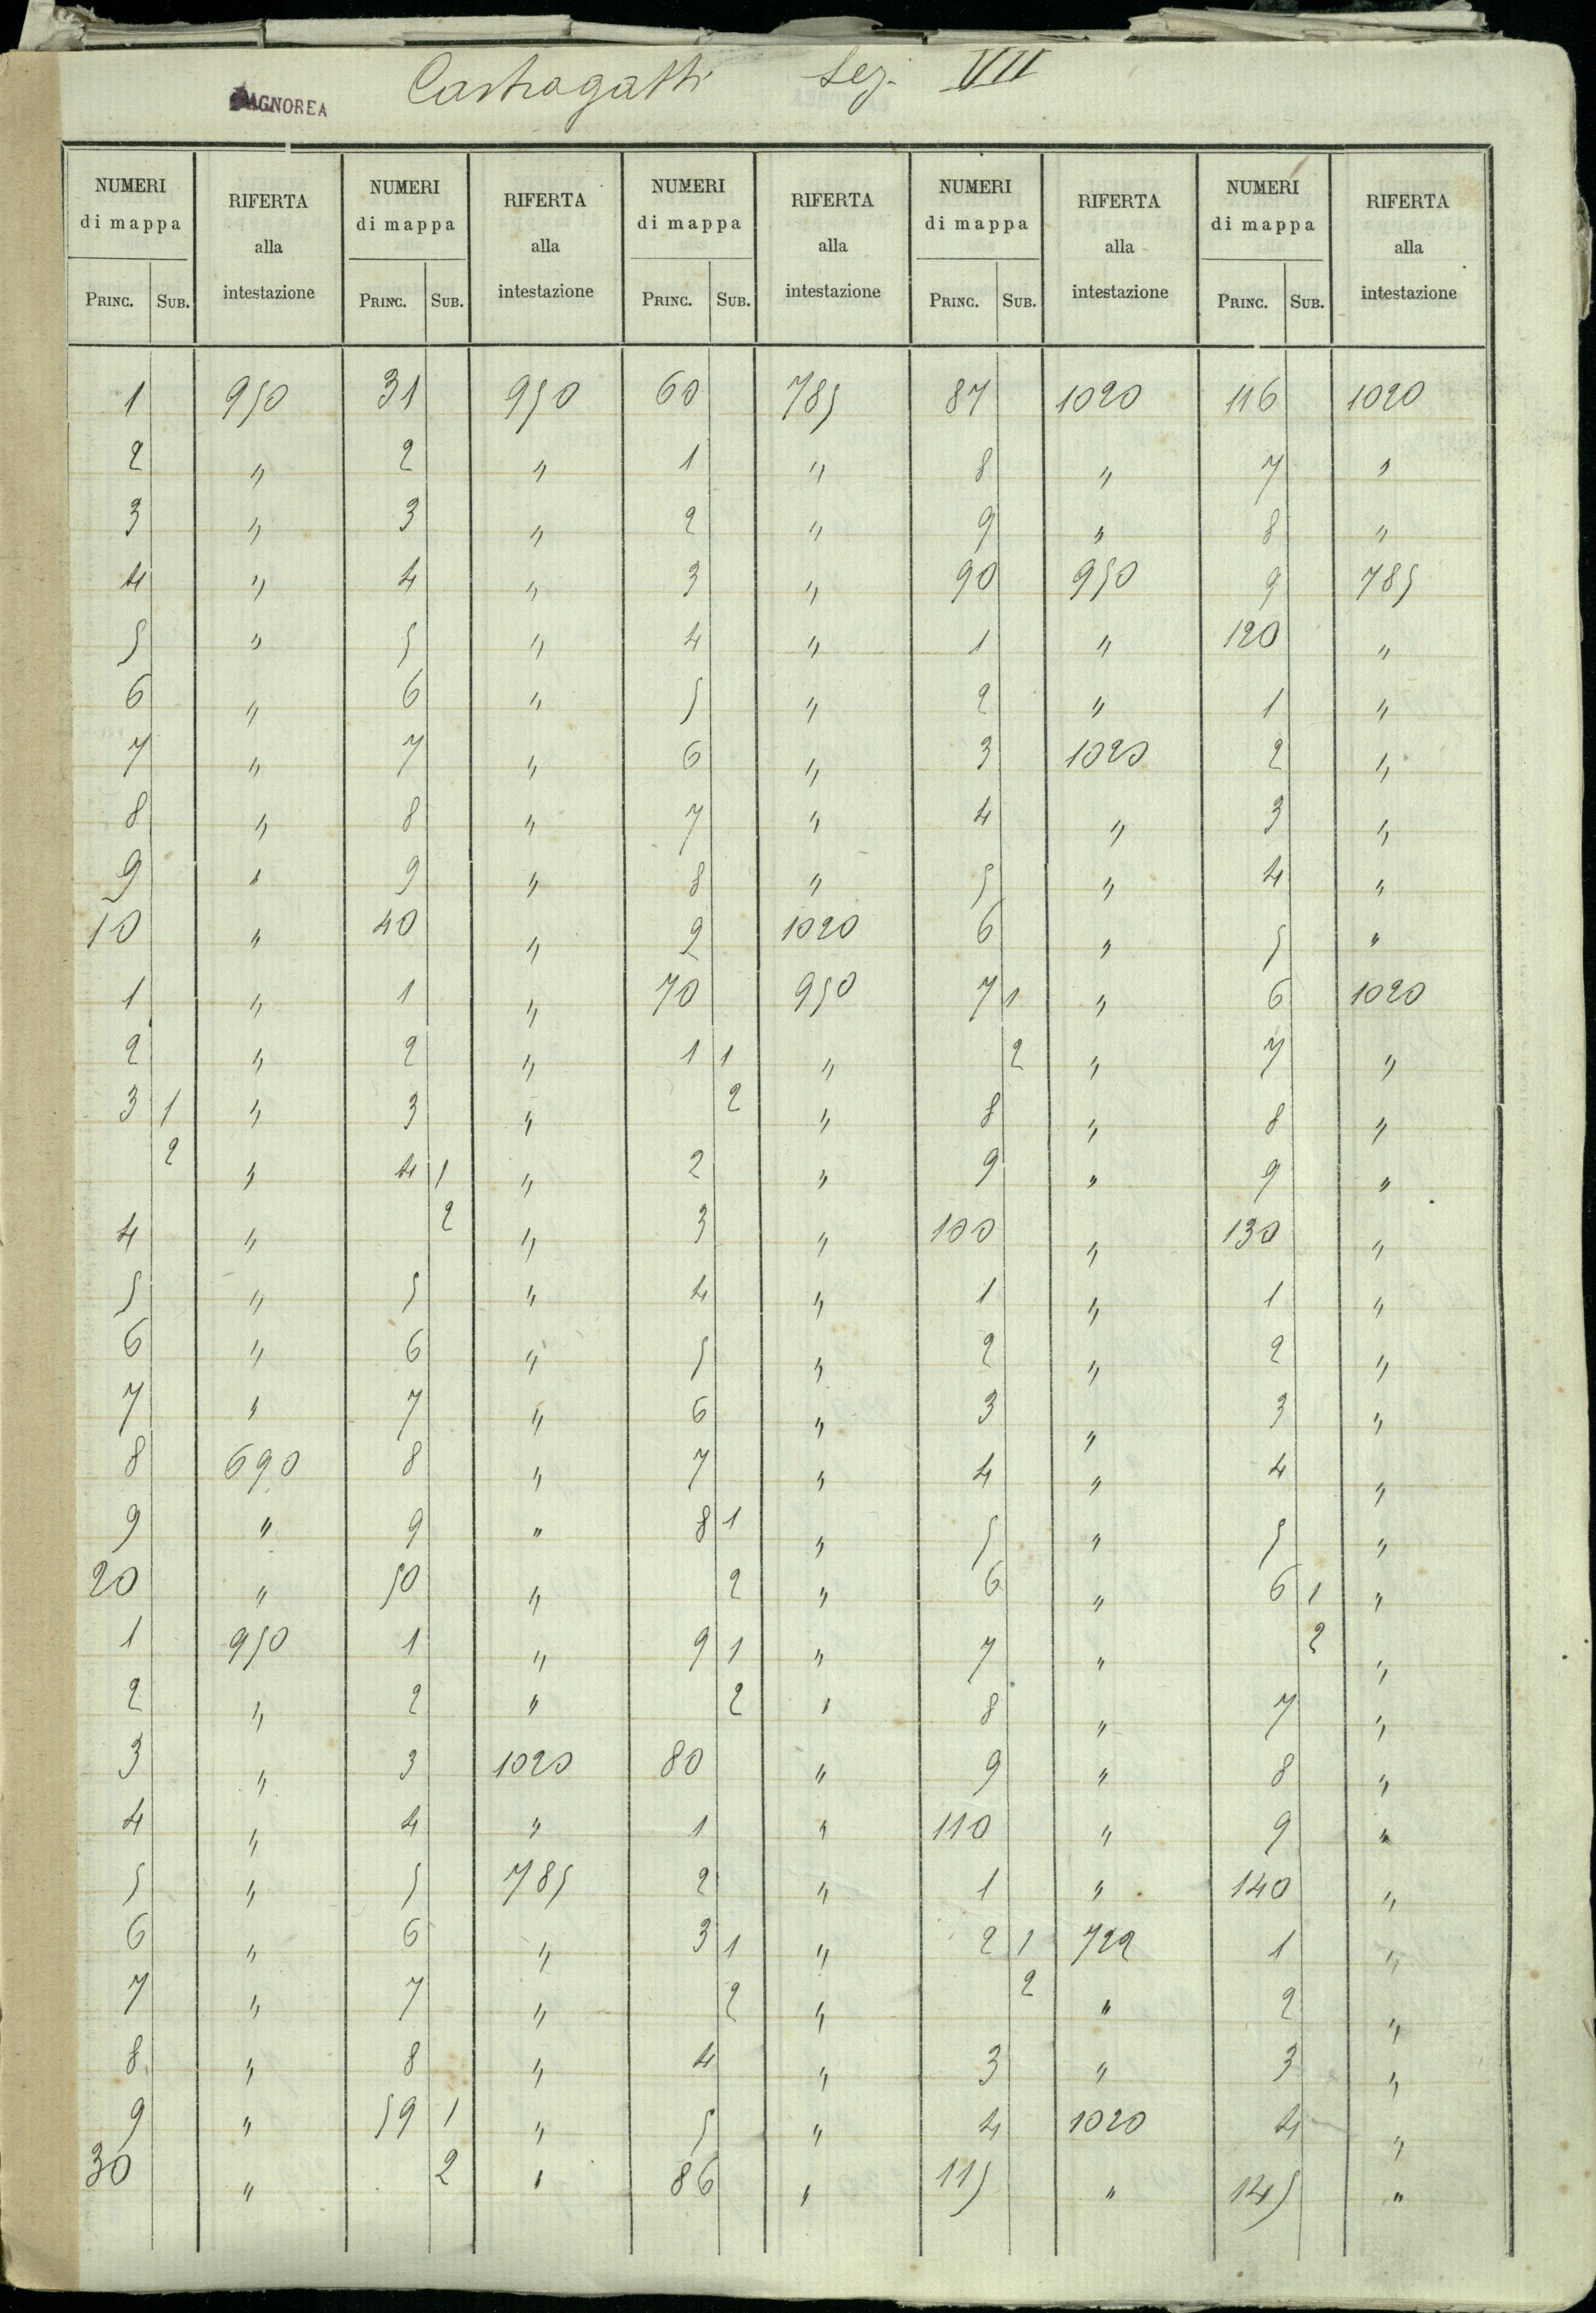 BAGNOREA
Castragatti Sez. VII
NUMERI NUMERI NUMERI NUMERI NUMERI
di mappa RIFERTA di mappa RIFERTA di mappa RIFERTA di mappa RIFERTA di mappa RIFERTA
alla alla alla alla alla
PRINC. SUB. intestazione PRINC. SUB. intestazione PRINC. SUB. intestazione PRINC. SUB. intestazione PRINC. SUB. intestazione
1 950 31 950 60 785 87 1020 116 1020
2 " 2 " 1 " 8 " 7 "
3 " 3 " 2 " 9 " 8 "
4 " 4 " 3 " 90 950 9 785
5 " 5 " 4 " 1 " 120 "
6 " 6 " 5 " 2 " 1 "
7 " 7 " 6 " 3 1020 2 "
8 " 8 " 7 " 4 " 3 "
9 " 9 " 8 " 5 " 4 "
10 " 40 " 9 1020 6 " 5 "
1 " 1 " 70 950 7 1 " 6 1020
2 " 2 " 1 1 " 2 " 7 "
3 1 " 3 " 2 " 8 " 8 "
2 " 4 1 " 2 " 9 " 9 "
4 " 2 " 3 " 100 " 130 "
5 " 5 " 4 " 1 " 1 "
6 " 6 " 5 " 2 " 2 "
7 " 7 " 6 " 3 " 3 "
8 690 8 " 7 " 4 " 4 "
9 " 9 " 8 1 " 5 " 5 "
20 " 50 " 2 " 6 " 6 1 "
1 950 1 " 9 1 " 7 " 2 "
2 " 2 " 2 " 8 " 7 "
3 " 3 1020 80 " 9 " 8 "
4 " 4 " 1 " 110 " 9 "
5 " 5 785 2 " 1 " 140 "
6 " 6 " 3 1 " 2 1 722 1 "
7 " 7 " 2 " 2 " 2 "
8 " 8 " 4 " 3 " 3 "
9 " 59 1 " 5 " 4 1020 4 "
30 " 2 " 86 " 115 " 145 "